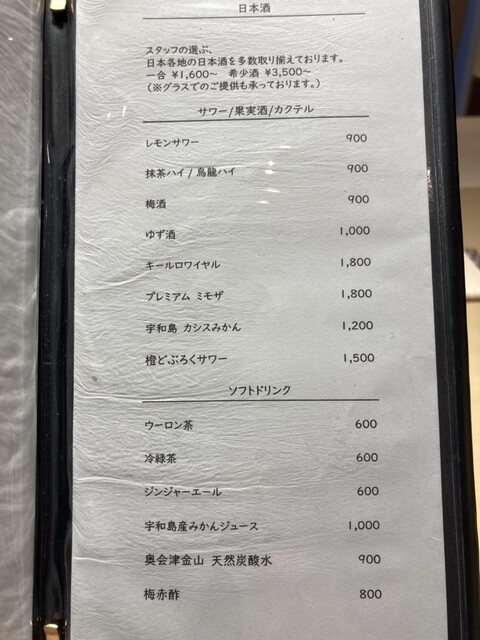 日本酒
スタッフの選ぶ、
日本各地の日本酒を多数取り揃えております。
一合 ¥1,600〜 希少酒 ¥3,500〜
(※グラスでのご提供も承っております。)
サワー/果実酒/カクテル
レモンサワー 900
抹茶ハイ / 烏龍ハイ 900
梅酒 900
ゆず酒 1,000
キールロワイヤル 1,800
プレミアム ミモザ 1,800
宇和島 カシスみかん 1,200
橙どぶろくサワー 1,500
ソフトドリンク
ウーロン茶 600
冷緑茶 600
ジンジャーエール 600
宇和島産みかんジュース 1,000
奥会津金山 天然炭酸水 900
梅赤酢 800